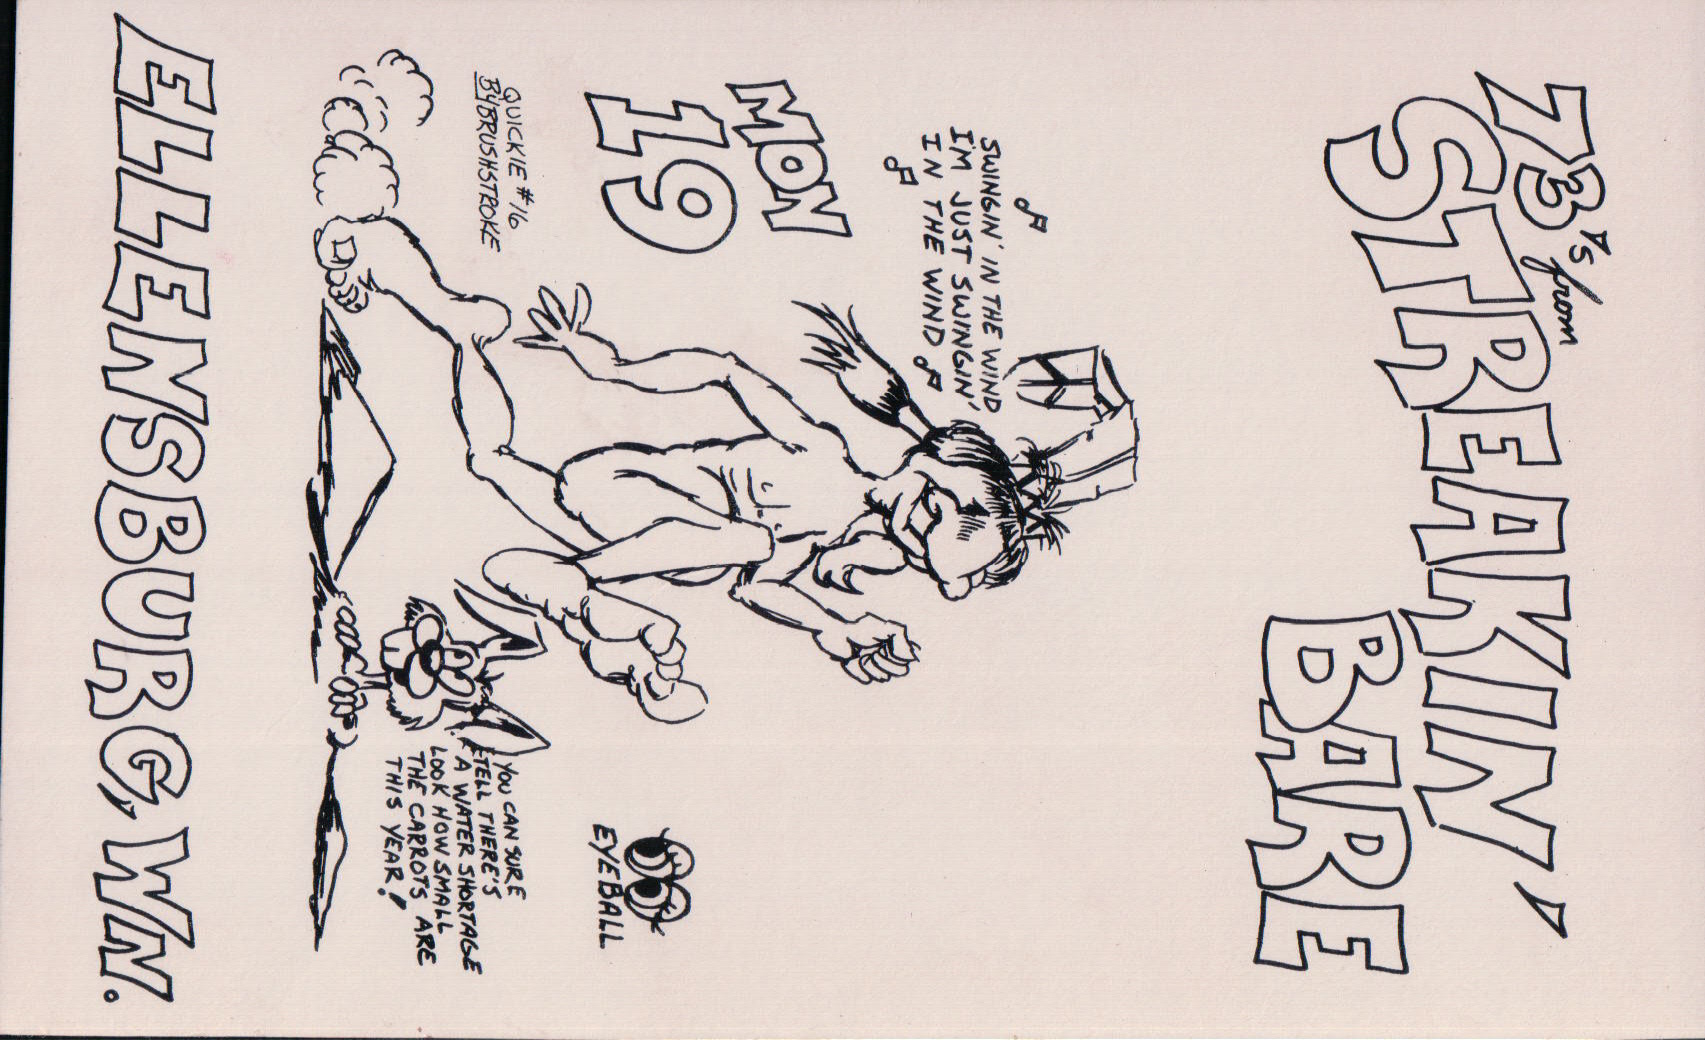 73's from
STREAKIN'
BARE
SWINGIN' IN THE WIND
I'M JUST SWINGIN'
IN THE WIND
MON
19
QUICKIE #16
BY BRUSHSTROKE
EYEBALL
YOU CAN SURE
TELL THERE'S
A WATER SHORTAGE
LOOK HOW SMALL
THE CARROTS ARE
THIS YEAR!
ELLENSBURG, WN.